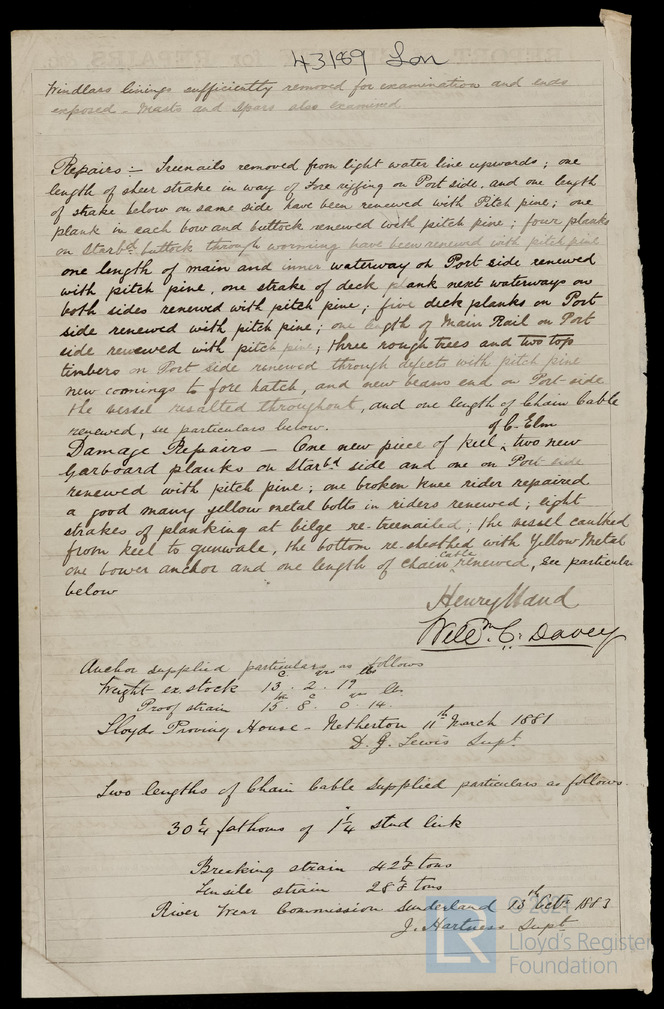 43189 Lon
Windlass linings sufficiently removed for examination and ends
exposed - Masts and Spars also examined
Repairs :- Treenails removed from light water line upwards ; one
length of sheer strake in way of Fore rigging on Port side, and one length
of strake below on same side have been renewed with Pitch pine ; one
plank in each bow and buttock renewed with pitch pine ; four planks
on Starbd buttock through worming have been renewed with pitch pine
one length of main and inner waterway on Port side renewed
with pitch pine, one strake of deck plank next waterways on
both sides renewed with pitch pine ; five deck planks on Port
side renewed with pitch pine ; one length of Main Rail on Port
side renewed with pitch pine ; three rough trees and two top
timbers on Port side renewed through defects with pitch pine
new comings to fore hatch, and new beams end on Port side
the vessel resalted throughout, and one length of Chain Cable
renewed, see particulars below.
of C. Elm
Damage Repairs - One new piece of keel ^ two new
Garboard planks on Starbd side and one on Port side
renewed with pitch pine ; one broken knee rider repaired
a good many yellow metal bolts in riders renewed ; eight
strakes of planking at bilge re-treenailed ; the vessel caulked
from keel to gunwale, the bottom re-sheathed with Yellow Metal
one bower anchor and one length of chain cable renewed, see particulars
below
Henry Maud
Willm. C. Davey
Anchor supplied particulars as follows
c qrs lbs
Weight ex. stock 13 . 2 . 19
c qrs lbs
Proof strain 15 . 8 . 0 . 14
Lloyds Proving House - Netherton 11th March 1881
D. G. Lewis Supt.
Two lengths of Chain Cable supplied particulars as follows
30 1/4 fathoms of 1 1/4 stud link
Breaking strain 42 1/8 tons
Tensile strain 28 1/8 tons
River Wear Commission Sunderland 13th Octr 1883
J. Hartness Supt
LR
© 2021
Lloyd's Register
Foundation